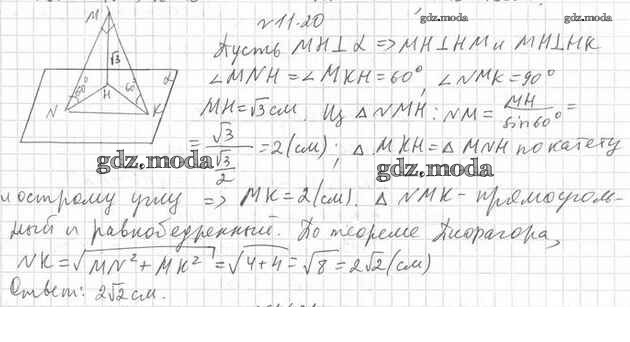 №11.20
gdz.moda
M
√3
α
60°
60°
H
N
K
Пусть MH⊥α => MH⊥HM и MH⊥HK
∠MNH = ∠MKH = 60°, ∠NMK = 90°
MH = √3 см. Из △NMH: NM = MH/sin60° =
= √3/(√3/2) = 2 (см); △MKH = △MNH по катету
gdz.moda
gdz.moda
и острому углу => MK = 2 (см). △NMK - прямоуголь-
ный и равнобедренный. По теореме Пифагора,
NK = √MN² + MK² = √4+4 = √8 = 2√2 (см)
Ответ: 2√2 см.